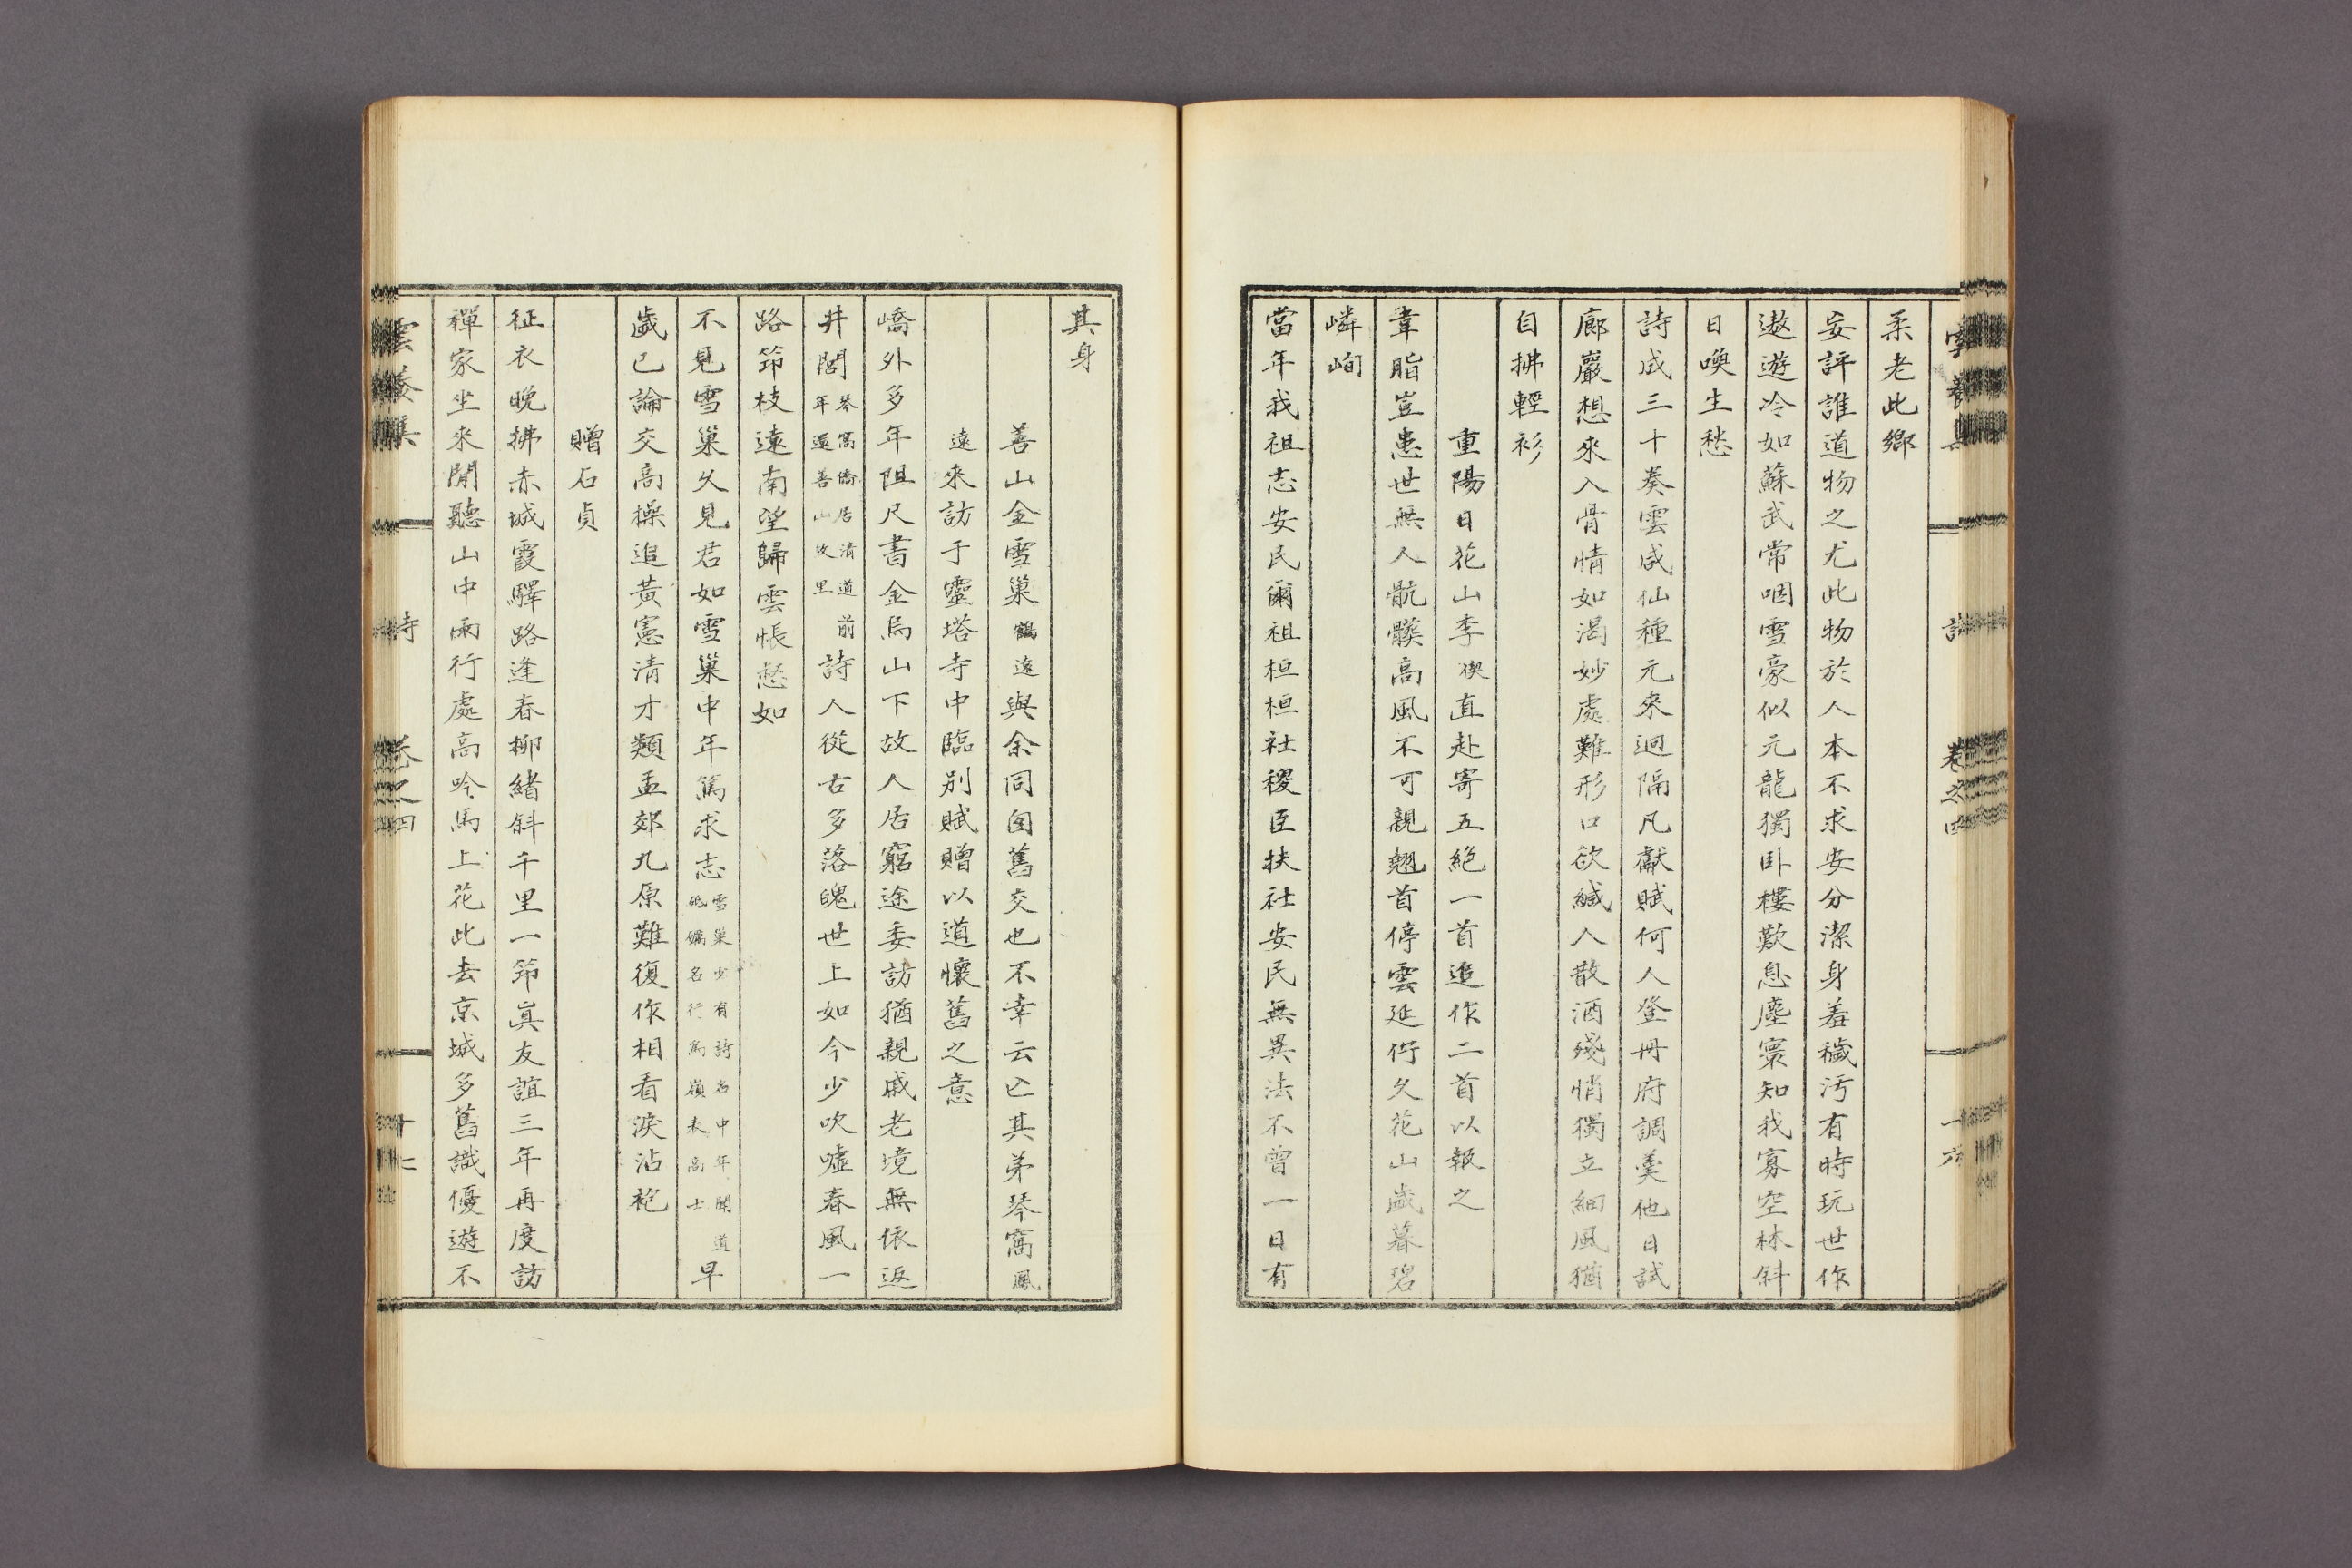 柔老此鄉
妄評誰道物之尤此物於人本不求安分潔身羞穢汚有時玩世作
遨遊冷如蘇武常咽雪豪似元龍獨卧樓歎息塵寰知我寡空林斜
日喚生愁
詩成三十奏雲咸仙種元來逈隔凡獻賦何人登册府調羹他日試
廊巖想來入骨情如渴妙處難形口欲緘人散酒殘悄獨立細風猶
自拂輕衫
重陽日花山李 直赴寄五絶一首追作二首以報之
韋脂豈患世無人骯髒高風不可親翹首停雲延佇久花山歲暮碧
嶙峋
當年我祖志安民爾祖桓桓社稷臣扶社安民無異法不曾一日有
卷之四
十六
其身
善山金雪巢鶴遠與余同囱舊交也不幸云亡其弟琴窩鳳
遠來訪于靈塔寺中臨別賦贈以道懷舊之意
嶠外多年阻尺書金烏山下故人居窮途委訪猶親戚老境無依返
井閭琴窩僑居清道前年還善山故里詩人從古多落魄世上如今少吹噓春風一
路筇枝遠南望歸雲悵愁如
不見雪巢久見君如雪巢中年篤求志雪巢少有詩名中年聞道砥礪名行爲嶺表高士早
歲已論交高操追黃憲清才類孟郊九原難復作相看淚沾袍
贈石貞
征衣晩拂赤城霞驛路逢春柳緖斜千里一筇眞友誼三年再度訪
禪家坐來閒聽山中雨行處高吟馬上花此去京城多舊識優遊不
詩
卷之四